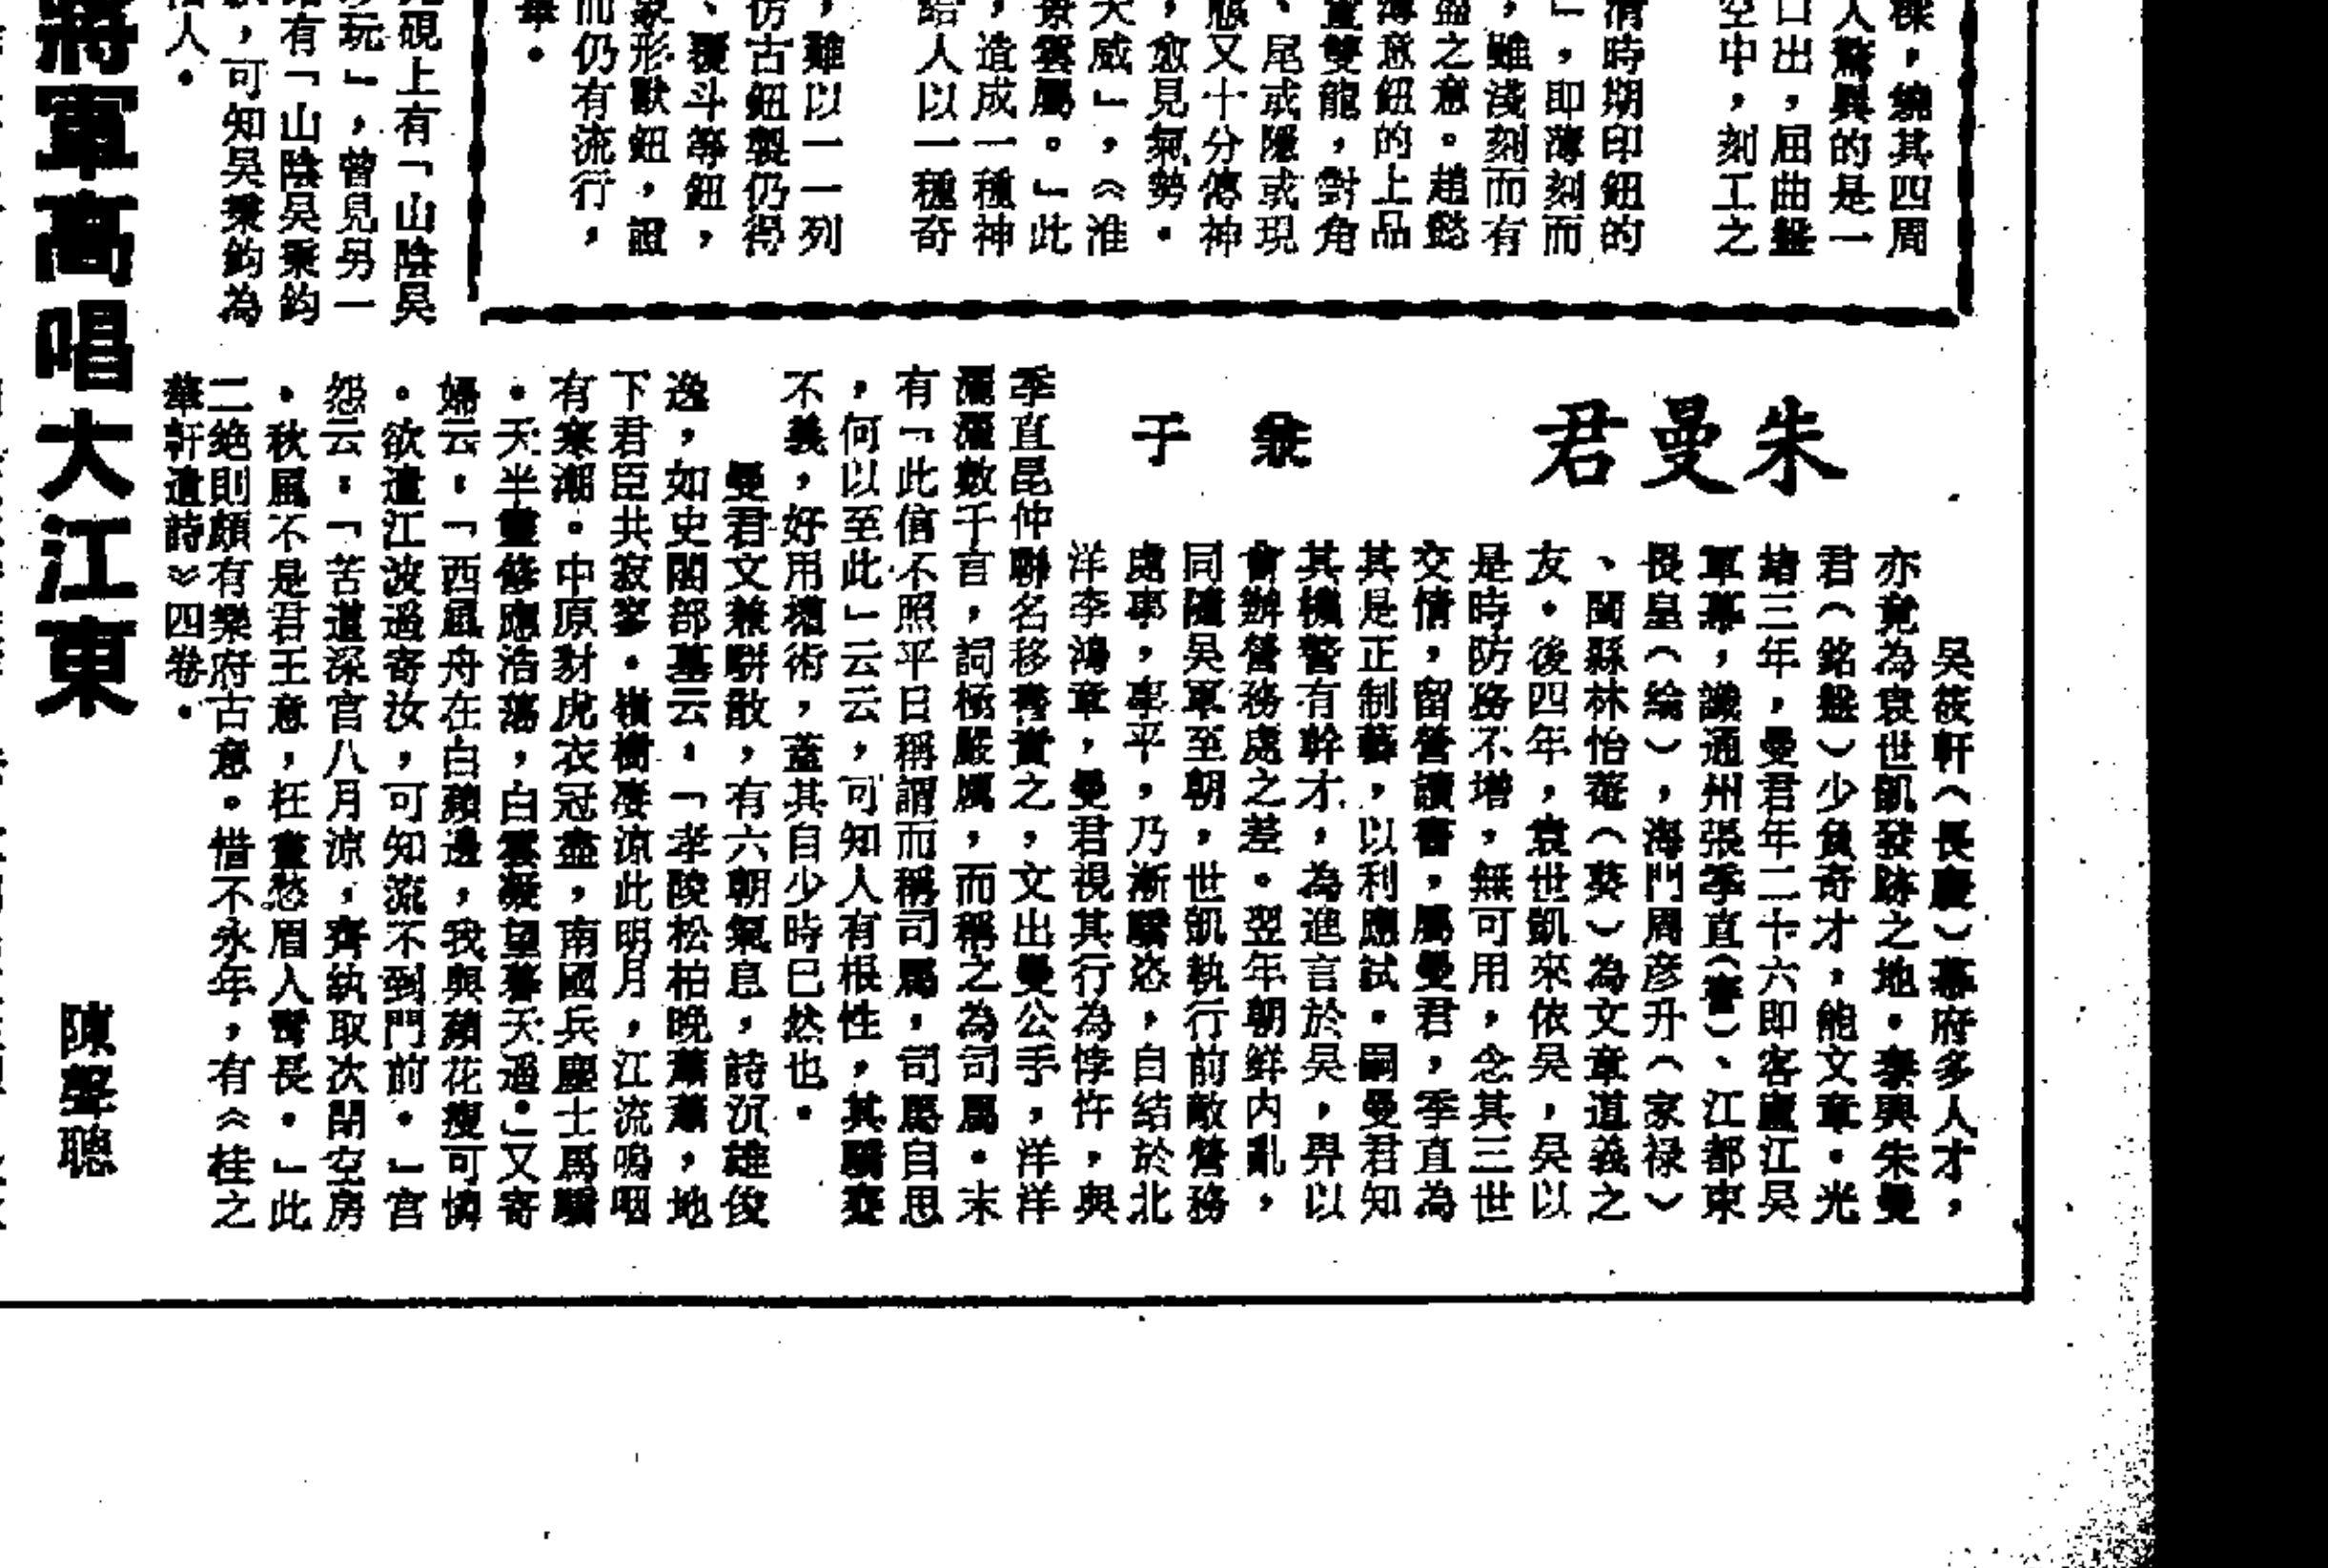 樑，繞其四周
人驚異的是一
口出，屈曲盤
空中，刻工之
清時期印鈕的
」，即薄刻而
，雖淺刻而有
盡之意。趙懿
薄意鈕的上品
畫雙龍，對角
、尾或隱或現
態又十分傳神
，愈見氣勢。
天威」，《淮
景雲屬。」此
，造成一種神
給人以一種奇
，難以一一列
仿古鈕製仍得
、覆斗等鈕，
象形獸鈕，證
而仍有流行，
硯上有「山陰吳
玩」，曾見另一
有「山陰吳秉鈞
，可知吳秉鈞為
人。
朱曼君
于
吳筱軒（長慶）幕府多人才，
亦竟為袁世凱發跡之地。泰興朱曼
君（銘盤）少負奇才，能文章。光
緒三年，曼君年二十六即客廬江吳
軍幕，識通州張季直（謇）、江都束
畏皇（綸），海門周彥升（家祿）
、閩縣林怡菴（葵）為文章道義之
友。後四年，袁世凱來依吳，吳以
是時防務不增，無可用，念其三世
交情，留營讀書，屬曼君，季直為
其是正制藝，以利應試。嗣曼君知
其機警有幹才，為進言於吳，畀以
會辦營務處之差。翌年朝鮮內亂，
同隨吳軍至朝，世凱執行前敵營務
處事，事平，乃漸驕恣，自結於北
洋李鴻章，曼君視其行為悖忤，與
季直昆仲聯名移書責之，文出曼公手，洋洋
灑灑數千言，詞極嚴厲，而稱之為司馬。末
有「此信不照平日稱謂而稱司馬，司馬自思
，何以至此」云云，可知人有根性，其驕蹇
不義，好用權術，蓋其自少時已然也。
曼君文兼駢散，有六朝氣息，詩沉雄俊
逸，如史閣部墓云：「孝陵松柏晚蕭蕭，地
下君臣共寂寥。嶺樹淒涼此明月，江流嗚咽
有寒潮。中原豺虎衣冠盡，南國兵塵士馬驕
。天半靈修應浩蕩，白雲凝望暮天遙。」又寄
婦云：「西風舟在白蘋邊，我與蘋花瘦可憐
。欲遣江波過寄汝，可知流不到門前。」宮
怨云：「苦道深宮八月涼，齊紈取次閉空房
。秋風不是君王意，枉畫愁眉入鬢長。」此
二絕則頗有樂府古意。惜不永年，有《桂之
華軒遺詩》四卷。
將軍高唱大江東
陳聲聰